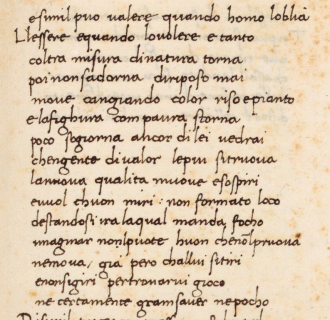 e simil puo valere quando homo loblia
Lessere e quando lo voltre e tanto
coltra misura di natura torna
poi non sadorna di riposo mai
move cangiando color riso e pianto
e la fighura com paura storna
poco sogiorna ancor di lei vedrai
chengente di valor lepiu si truova
la nuova qualita muove e sospiri
e vuol chuon miri non formato loco
destandosi ira la qual manda focho
imaginar non puote huon che nol pruova
ne mova gia pero challui si tiri
e non si giri per trovarvi gioco
ne certamente gram saver ne pocho